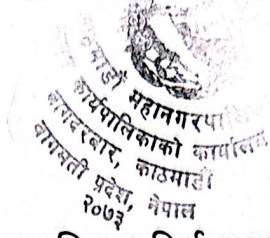 महानगरपालि
कार्यपालिकाको कार्यालय
बागदरबार, काठमाडौं
बागमती प्रदेश, नेपाल
२०७३